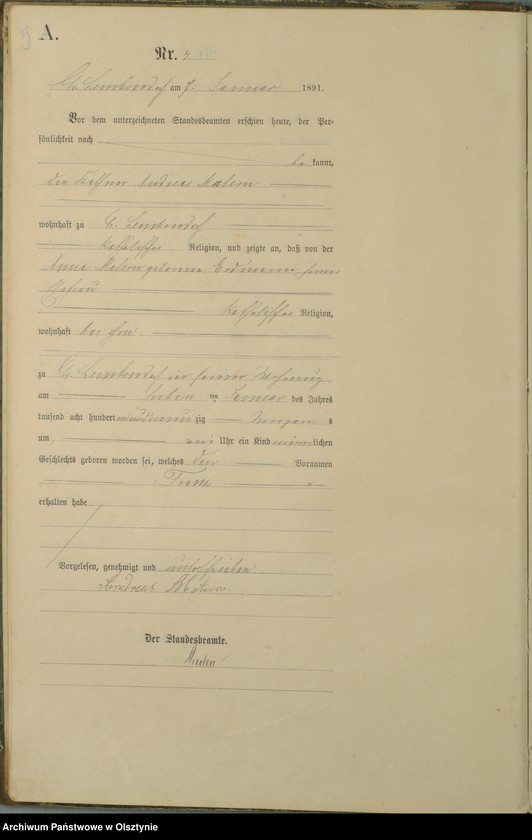 A.
Nr. 4
Gr. Lemkendorf am 7. Januar 1891.
Vor dem unterzeichneten Standesbeamten erschien heute, der Per-
sönlichkeit nach
be kannt,
der Andreas
wohnhaft zu Gr. Lemkendorf
katholischer Religion, und zeigte an, daß von der
Anna geborene Erdmann, seiner
Ehefrau
katholischer Religion,
wohnhaft bei ihm
zu Gr. Lemkendorf in seiner Wohnung
am sieben ten Januar des Jahres
tausend acht hundert einundneun zig Morgen s
um Uhr ein Kind männ lichen
Geschlechts geboren worden sei, welches den Vornamen
Franz
erhalten habe
Vorgelesen, genehmigt und unterschrieben
Andreas
Der Standesbeamte.
Archiwum Państwowe w Olsztynie